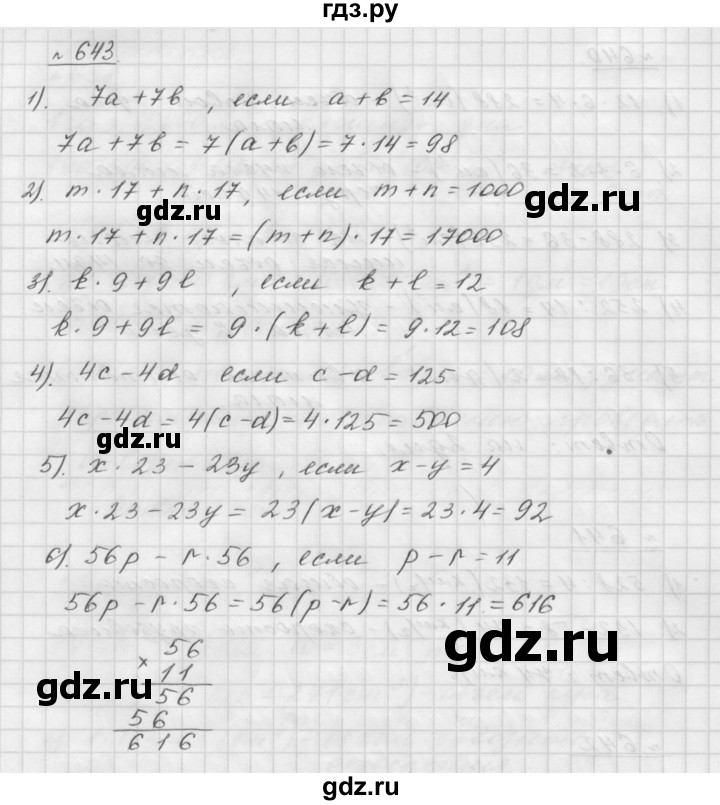 гдз.ру
№ 643.
1). 7a + 7b , если a + b = 14
7a + 7b = 7(a + b) = 7 · 14 = 98
2). m · 17 + n · 17, если m + n = 1000
gdz.ru
gdz.ru
m · 17 + n · 17 = (m + n) · 17 = 17000
3). k · 9 + 9l , если k + l = 12
k · 9 + 9l = 9 · (k + l) = 9 · 12 = 108
4). 4c - 4d если c - d = 125
4c - 4d = 4(c - d) = 4 · 125 = 500
gdz.ru
5). x · 23 - 23y , если x - y = 4
x · 23 - 23y = 23(x - y) = 23 · 4 = 92
6). 56p - r · 56 , если p - r = 11
56p - r · 56 = 56(p - r) = 56 · 11 = 616
× 56
11
56
56
616
gdz.ru
gdz.ru
gdz.ru